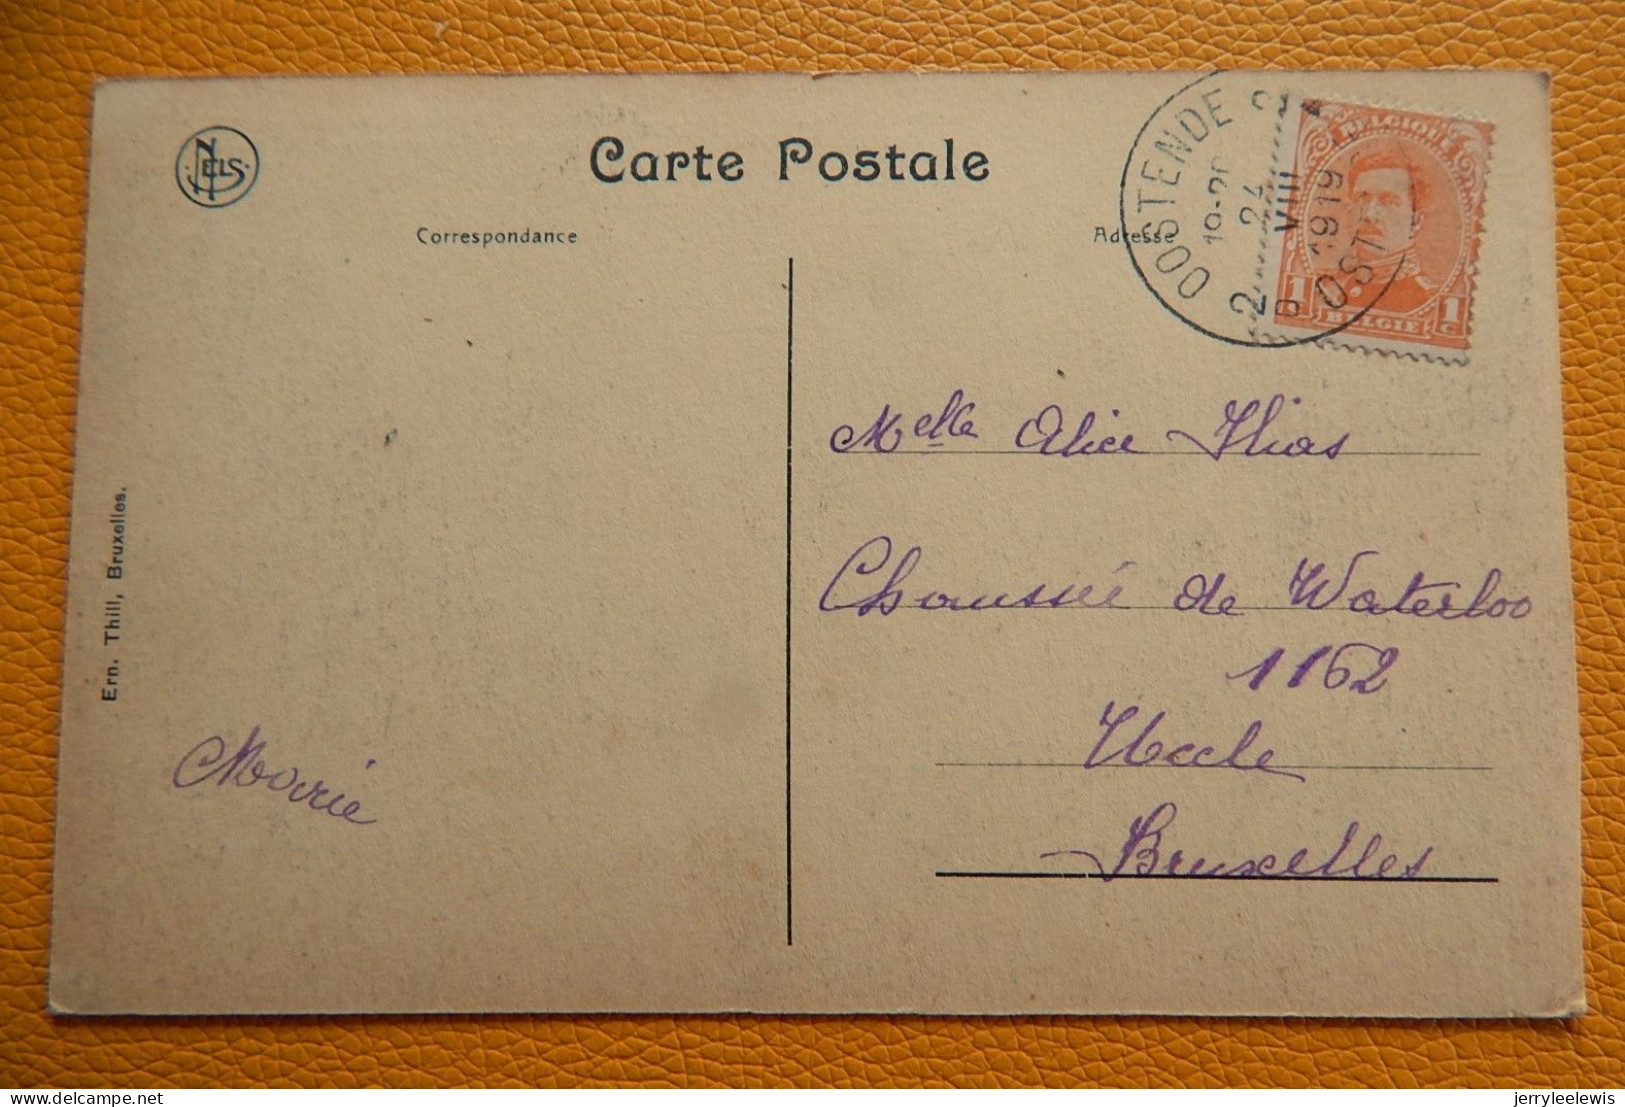 NELS
Carte Postale
Correspondance
Adresse
OOSTENDE 2
24
VIII
1919
2 B OST
BELGIQUE
1 1
BELGIE C
Melle Alice
Chaussée de Waterloo
1162
Uccle
Bruxelles
Marie
Ern. Thill, Bruxelles.
delcampe.net
jerryleelewis